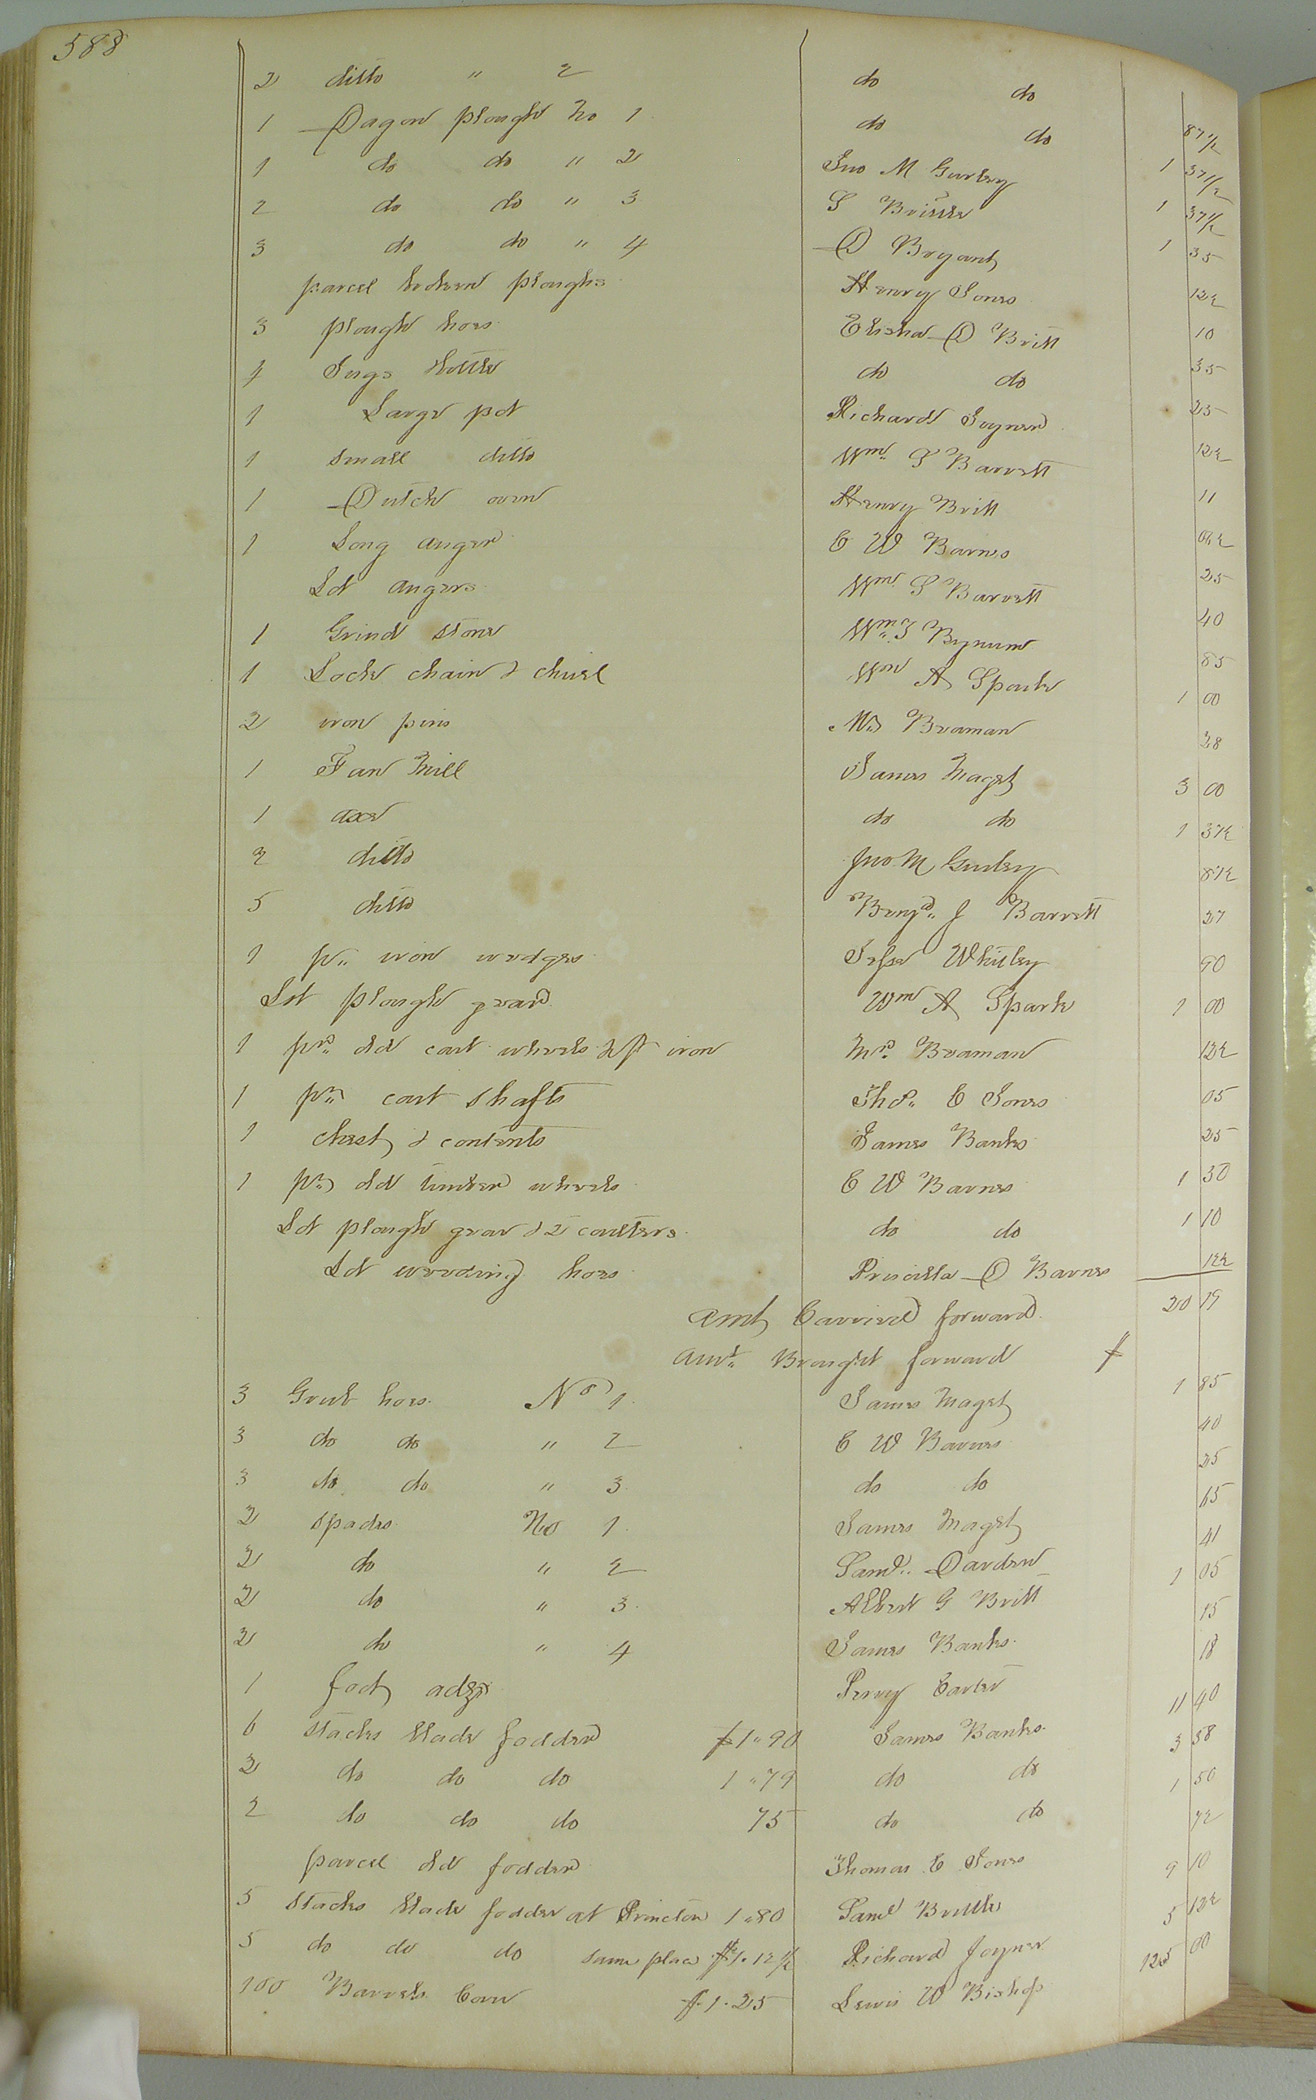 588
2 ditto " 2 do do 87 1/2
1 Dagon plough No 1 do do 1 37 1/2
1 do do " 2 Jno M Gurley 1 37 1/2
2 do do " 3 S Brittle 1 35
3 do do " 4 D Bryant 12½
parcel broken ploughs Henry Jones 10
3 plough hoes Elisha D Britt 35
1 Large kettle do do 25
1 Large pot Richard Joyner 12½
1 small ditto Wm S Barrett 11
1 Dutch oven Henry Britt 06½
1 Long auger C W Barnes 25
Lot augers Wm S Barrett 40
1 Grind stone Wm J Bynum 85
1 Lock chain & chisel Wm A Spark 1 00
2 iron pins Mrs Beaman 28
1 Fan Mill James Maget 3 00
1 axe do do 1 37½
2 ditto Jno M Gurley 87½
5 ditto Benjn J Barrett 27
1 pr iron wedges Jesse Whitley 90
Lot plough gear Wm A Spark 1 00
1 pr old cart wheels & pr iron Mrs Beaman 12½
1 pr cart shafts Thos C Jones 05
1 chest & contents James Banks 25
1 pr old timber wheels C W Barnes 1 30
Lot plough gear & 2 coulters do do 1 10
Lot weeding hoes Priscilla D Barnes 12½
Amt Carried forward 20 19
Amt Brought forward $
3 Grub hoes No 1 James Maget 1 85
3 do do " 2 C W Barnes 40
3 do do " 3 do do 25
2 spades No 1 James Maget 65
2 do " 2 Saml Darden 41
2 do " 3 Albert G Britt 1 05
2 do " 4 James Banks 15
1 foot adze Perry Carter 18
6 stacks blade fodder $1.90 James Banks 11 40
2 do do do 1.79 do do 3 58
2 do do do 75 do do 1 50
parcel old fodder Thomas C Jones 72
5 Stacks blade fodder at Princeton 1.80 Saml Brittle 9 10
5 do do do same place $1.12 1/2 Richard Joyner 5 12½
100 Barrels Corn $.1.25 Lewis W Bishop 125 00